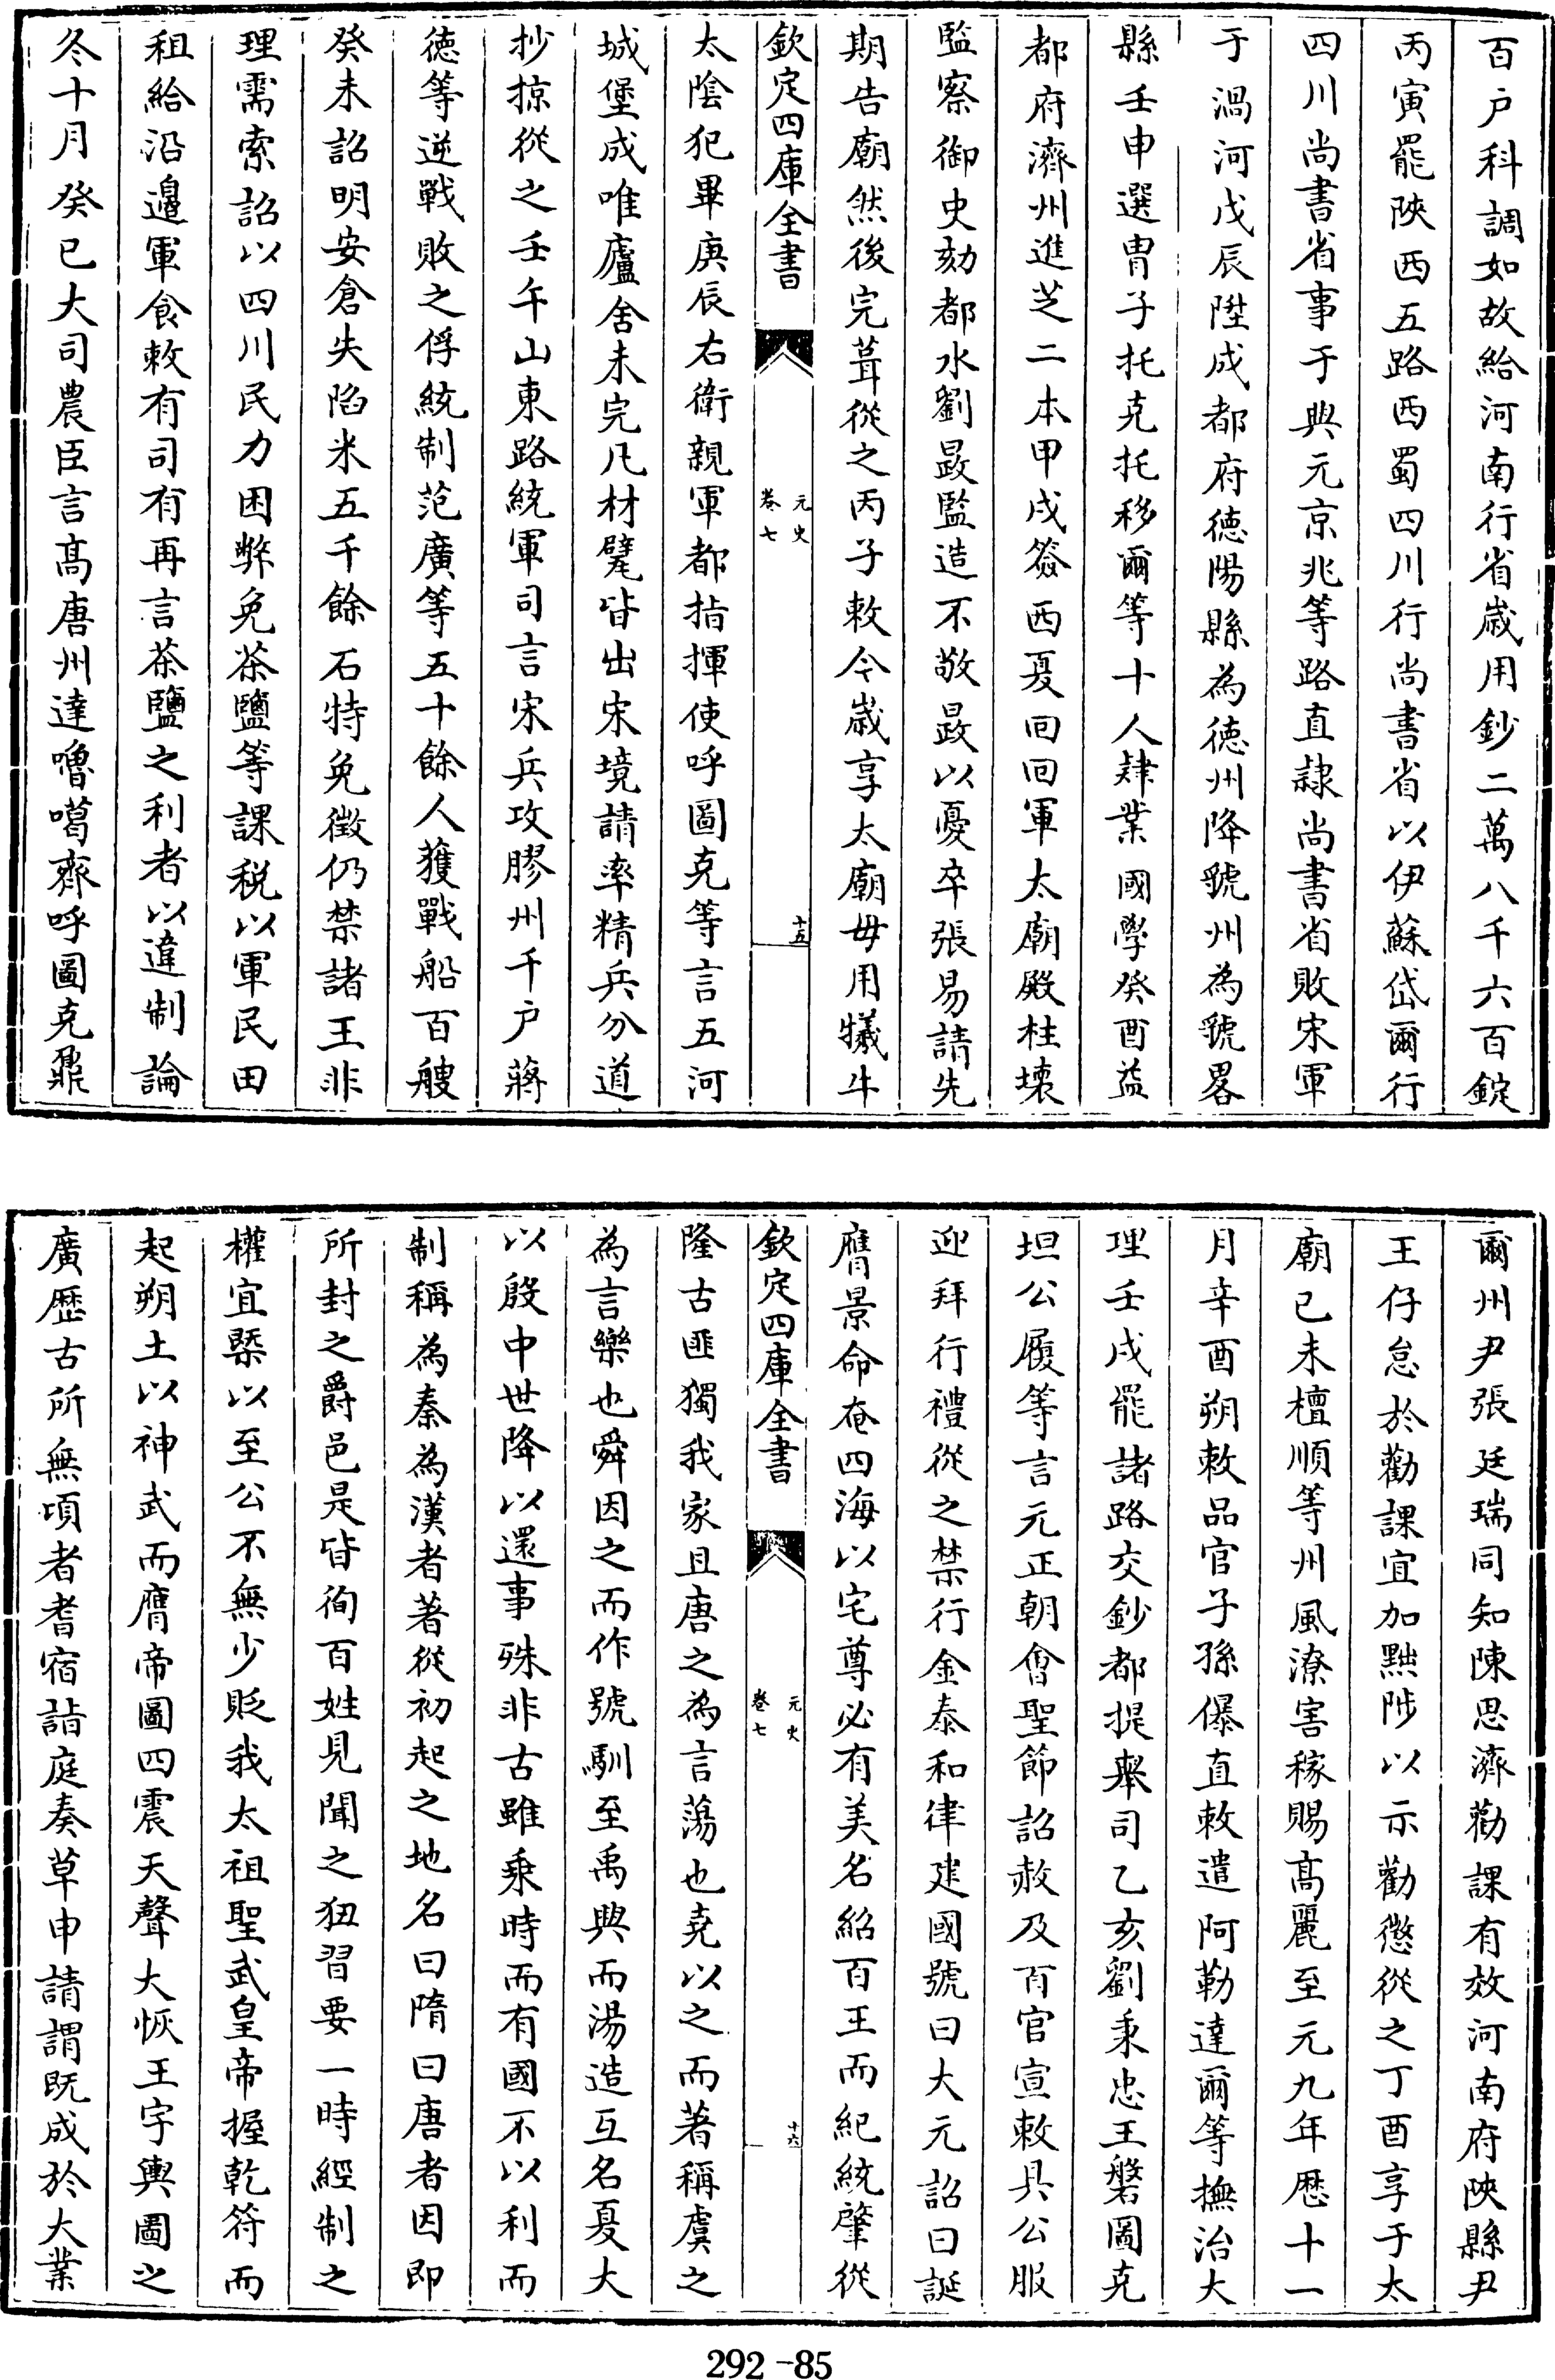 百户科調如故給河南行省歲用鈔二萬八千六百錠
丙寅罷陜西五路西蜀四川行尚書省以伊蘇岱爾行
四川尚書省事于興元京兆等路直隷尚書省敗宋軍
于渦河戊辰陞成都府徳陽縣為徳州降虢州為虢畧
縣壬申選胄子托克托移爾等十人肄業國學癸酉益
都府濟州進芝二本甲戌簽西夏回回軍太廟殿柱壊
監察御史劾都水劉晸監造不敬晸以憂卒張易請先
期告廟然後完葺從之丙子敕今歲享太廟毋用犧牛
欽定四庫全書
元史
卷七
十五
太陰犯畢庚辰右衛親軍都指揮使呼圖克等言五河
城堡成唯廬舍未完凡材甓皆出宋境請率精兵分道
抄掠從之壬午山東路統軍司言宋兵攻膠州千户蔣
徳等逆戰敗之俘統制范廣等五十餘人獲戰船百艘
癸未詔明安倉失陷米五千餘石特免徴仍禁諸王非
理需索詔以四川民力困弊免茶鹽等課税以軍民田
租給沿邉軍食敕有司有再言茶鹽之利者以違制論
冬十月癸已大司農臣言髙唐州達嚕噶齊呼圖克鼐
爾州尹張廷瑞同知陳思濟勸課有效河南府陜縣尹
王仔怠於勸課宜加黜陟以示勸懲從之丁酉享于太
廟已未檀順等州風潦害稼賜髙麗至元九年厯十一
月辛酉朔敕品官子孫儤直敕遣阿勒達爾等撫治大
理壬戌罷諸路交鈔都提舉司乙亥劉秉忠王磐圖克
坦公履等言元正朝會聖節詔赦及百官宣敕具公服
迎拜行禮從之禁行金泰和律建國號曰大元詔曰誕
膺景命奄四海以宅尊必有美名紹百王而紀統肇從
欽定四庫全書
元史
卷七
十六
隆古匪獨我家且唐之為言蕩也堯以之而著稱虞之
為言樂也舜因之而作號馴至禹興而湯造互名夏大
以殷中世降以還事殊非古雖乘時而有國不以利而
制稱為秦為漢者著從初起之地名曰隋曰唐者因即
所封之爵邑是皆徇百姓見聞之狃習要一時經制之
權宜槩以至公不無少貶我太祖聖武皇帝握乾符而
起朔土以神武而膺帝圖四震天聲大恢王字輿圖之
廣歴古所無頃者耆宿詣庭奏草申請謂既成於大業
292-85